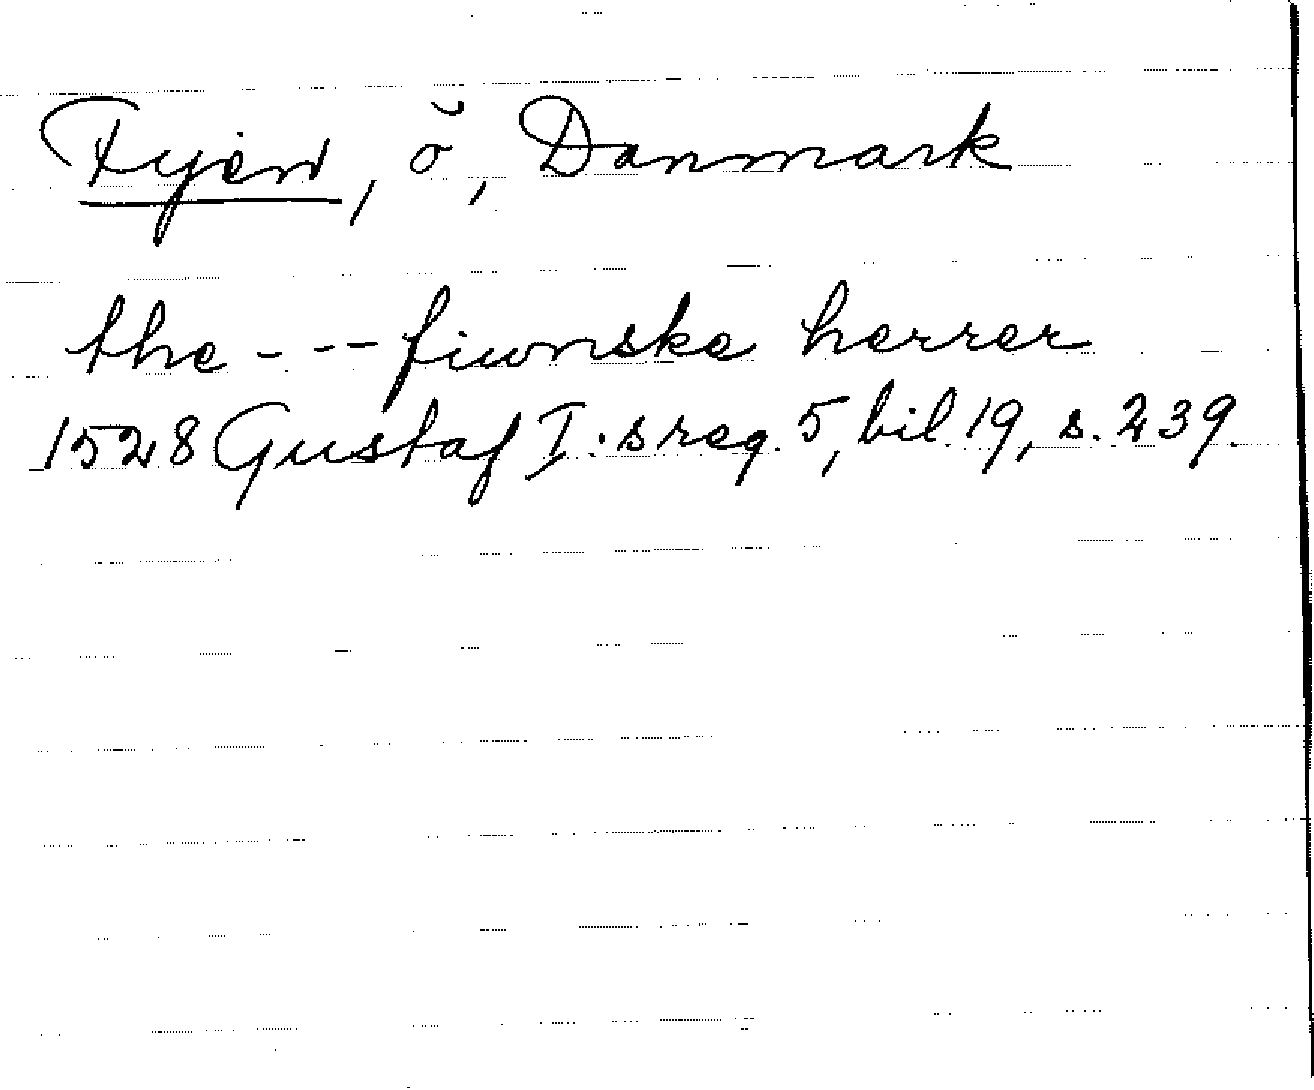 Fyen, ö, Danmark
the - - - fiwnske herrer
1528 Gustaf I:s reg. 5, bil. 19, s. 239.